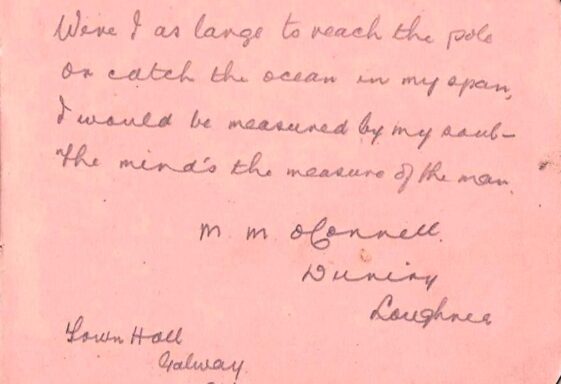 Were I as large to reach the pole
or catch the ocean in my span,
I would be measured by my soul-
The mind's the measure of the man.
M M O'Connell.
Duniry
Loughrea
Town Hall
Galway.